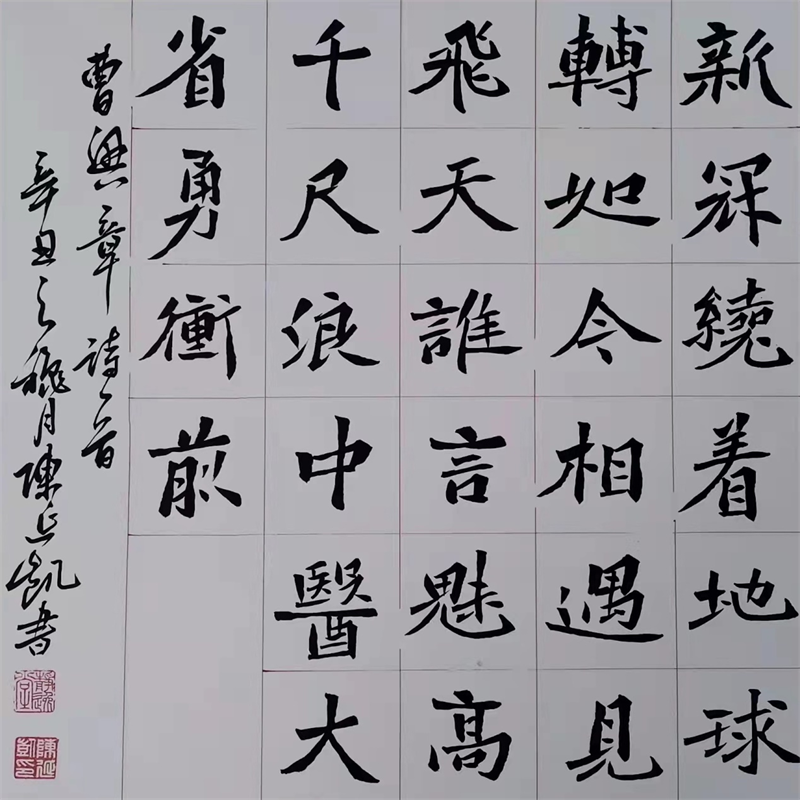 新冠繞着地球
轉如今相遇見
飛天誰言魅高
千尺浪中醫大
省勇衝前
曹興章詩一首
辛丑之槐月陳延凱書